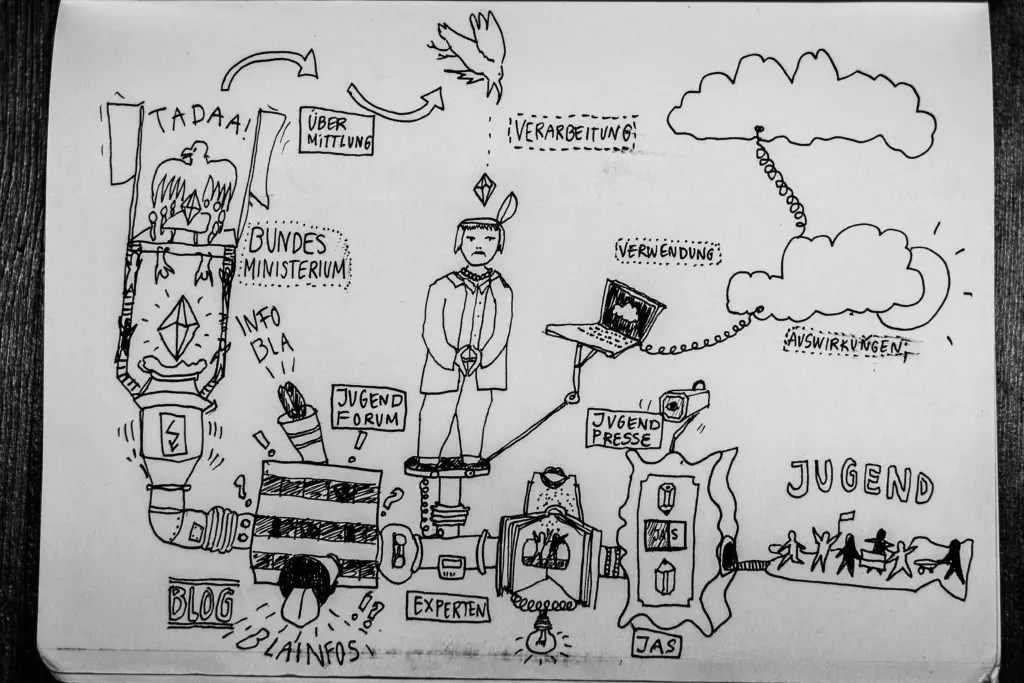 TADAA!
ÜBER
MITTLUNG
VERARBEITUNG
BUNDES
MINISTERIUM
VERWENDUNG
AUSWIRKUNGEN
INFO
BLA
JUGEND
FORUM
JUGEND
PRESSE
JUGEND
JAS
BLOG
EXPERTEN
BLAINFOS
JAS